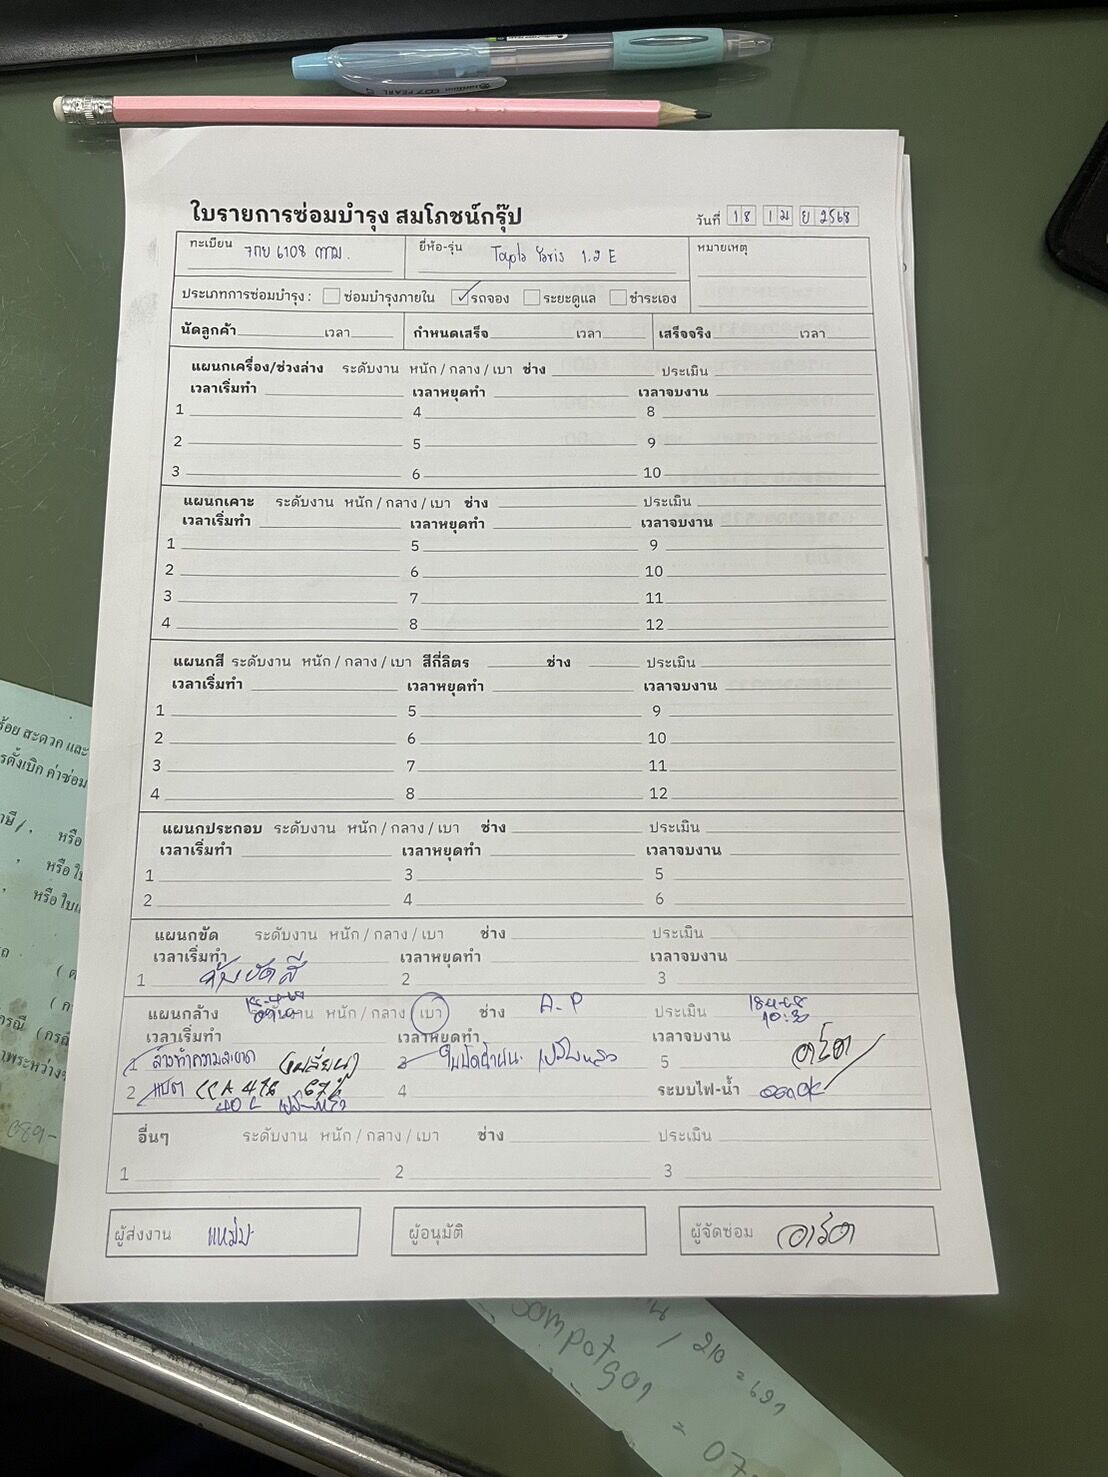 ใบรายการซ่อมบำรุง สมโภชน์กรุ๊ป
วันที่ 18 เม ย 2568
ทะเบียน 7กย 6108 กทม. ยี่ห้อ-รุ่น Toyota Yaris 1.2 E หมายเหตุ
ประเภทการซ่อมบำรุง : ซ่อมบำรุงภายใน รถจอง ระยะดูแล ชำระเอง
นัดลูกค้า เวลา กำหนดเสร็จ เวลา เสร็จจริง เวลา
แผนกเครื่อง/ช่วงล่าง ระดับงาน หนัก / กลาง / เบา ช่าง ประเมิน
เวลาเริ่มทำ เวลาหยุดทำ เวลาจบงาน
1 4 8
2 5 9
3 6 10
แผนกเคาะ ระดับงาน หนัก / กลาง / เบา ช่าง ประเมิน
เวลาเริ่มทำ เวลาหยุดทำ เวลาจบงาน
1 5 9
2 6 10
3 7 11
4 8 12
แผนกสี ระดับงาน หนัก / กลาง / เบา สีกี่ลิตร ช่าง ประเมิน
เวลาเริ่มทำ เวลาหยุดทำ เวลาจบงาน
1 5 9
2 6 10
3 7 11
4 8 12
แผนกประกอบ ระดับงาน หนัก / กลาง / เบา ช่าง ประเมิน
เวลาเริ่มทำ เวลาหยุดทำ เวลาจบงาน
1 3 5
2 4 6
แผนกขัด ระดับงาน หนัก / กลาง / เบา ช่าง ประเมิน
เวลาเริ่มทำ เวลาหยุดทำ เวลาจบงาน
1 ขัดสี 2 3
แผนกล้าง ระดับงาน หนัก / กลาง / เบา ช่าง A-P ประเมิน 18-4-68
10:30
เวลาเริ่มทำ เวลาหยุดทำ เวลาจบงาน
1 ล้างทำความสะอาด (เปลี่ยน) 3 ใบปัดน้ำฝน 5
2 แบต CCA 416 67%
4 ระบบไฟ-น้ำ
40 L
อื่นๆ ระดับงาน หนัก / กลาง / เบา ช่าง ประเมิน
1 2 3
ผู้ส่งงาน ผู้อนุมัติ ผู้จัดซ่อม
ร้อย สะดวก และ
รตั้งเบิก ค่าซ่อม
หรือ
หรือ ใบ
หรือ ใบ
/ 210 = 691
= 07